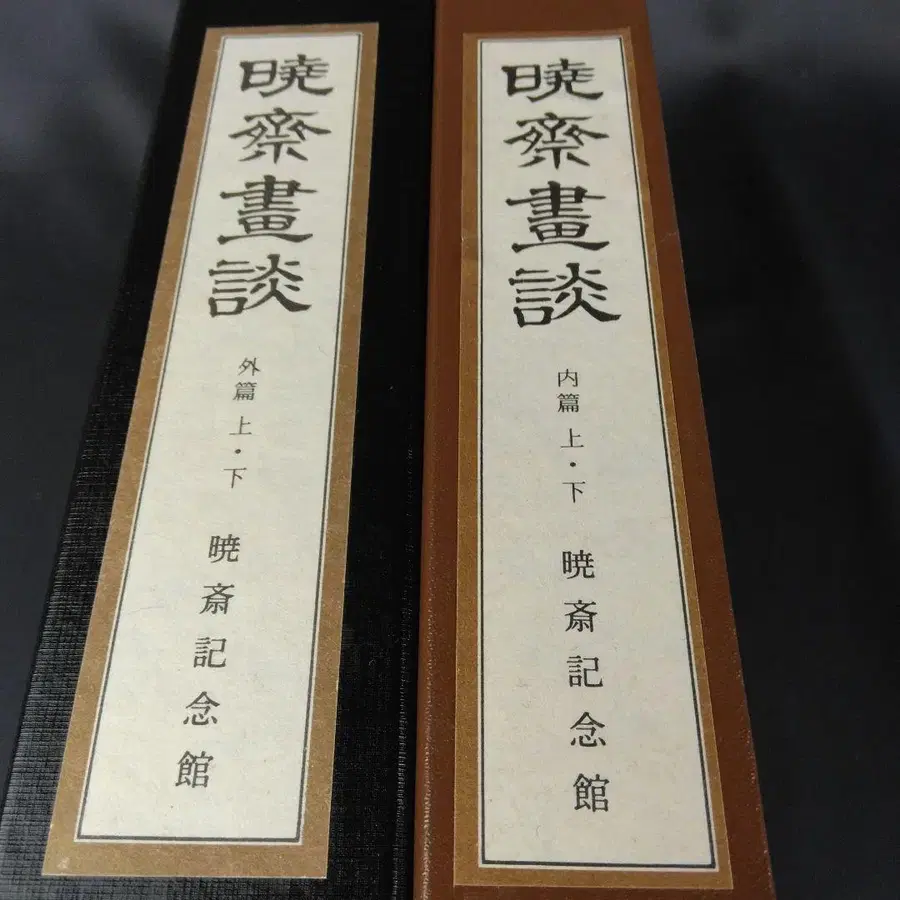 暁齋畫談
外篇 上・下
暁斎記念館
暁齋畫談
内篇 上・下
暁斎記念館